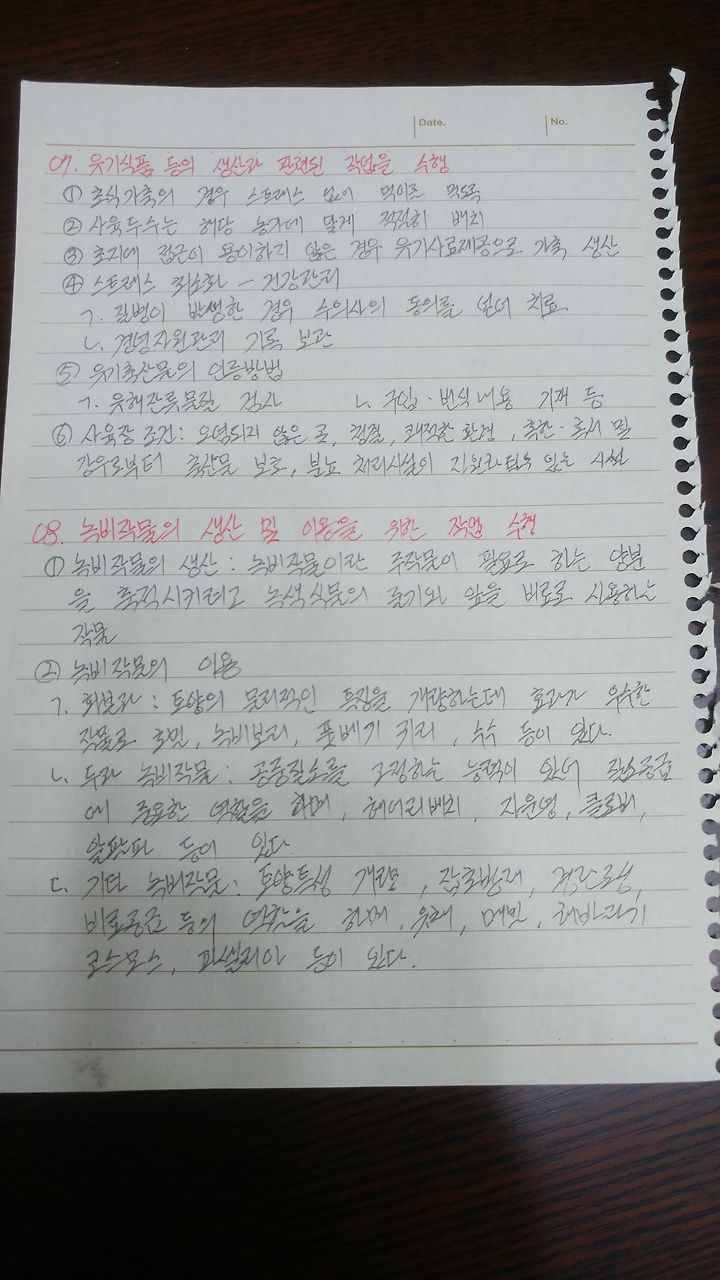 Date.
No.
07. 유기식품 등의 생산과 관련된 작업을 수행
① 초식가축의 경우 스트레스 없이 먹이를 먹도록
② 사육두수는 해당 농가에 맞게 적절히 배치
③ 초지에 접근이 용이하지 않은 경우 유기사료제공으로 가축 생산
④ 스트레스 최소화 - 건강관리
ㄱ. 질병이 발생한 경우 수의사의 동의를 얻어 치료
ㄴ. 경영자원관리 기록 보관
⑤ 유기축산물의 인증방법
ㄱ. 유해잔류물질 검사 ㄴ. 구입·번식내용 기재 등
⑥ 사육장 조건: 오염되지 않은 곳, 청결, 쾌적한 환경, 혹한·혹서 및
강우로부터 축산물 보호, 분뇨 처리시설이 있는 시설
08. 녹비작물의 생산 및 이용을 위한 작업 수행
① 녹비작물의 생산: 녹비작물이란 주작물이 필요로 하는 양분
을 축적시키려고 녹색식물의 줄기와 잎을 비료로 사용하는
작물
② 녹비작물의 이용
ㄱ. 화본과: 토양의 물리적인 특징을 개량하는데 효과가 우수한
작물로 호밀, 녹비보리, 풋베기 귀리, 수수 등이 있다.
ㄴ. 두과 녹비작물: 공중질소를 고정하는 능력이 있어 질소공급
에 중요한 역할을 하며, 헤어리베치, 자운영, 클로버,
알팔파 등이 있다
ㄷ. 기타 녹비작물: 토양특성 개량, 잡초방제, 경관조성,
비료공급 등의 역할을 하며, 유채, 메밀, 해바라기
코스모스, 파셀리아 등이 있다.